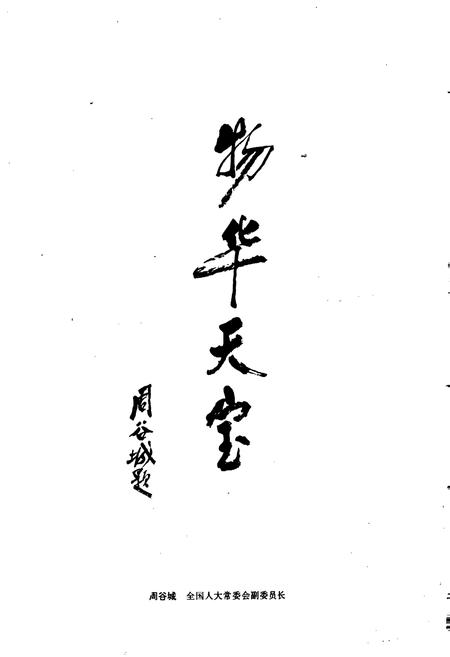 物华天宝
周谷城题
周谷城 全国人大常委会副委员长